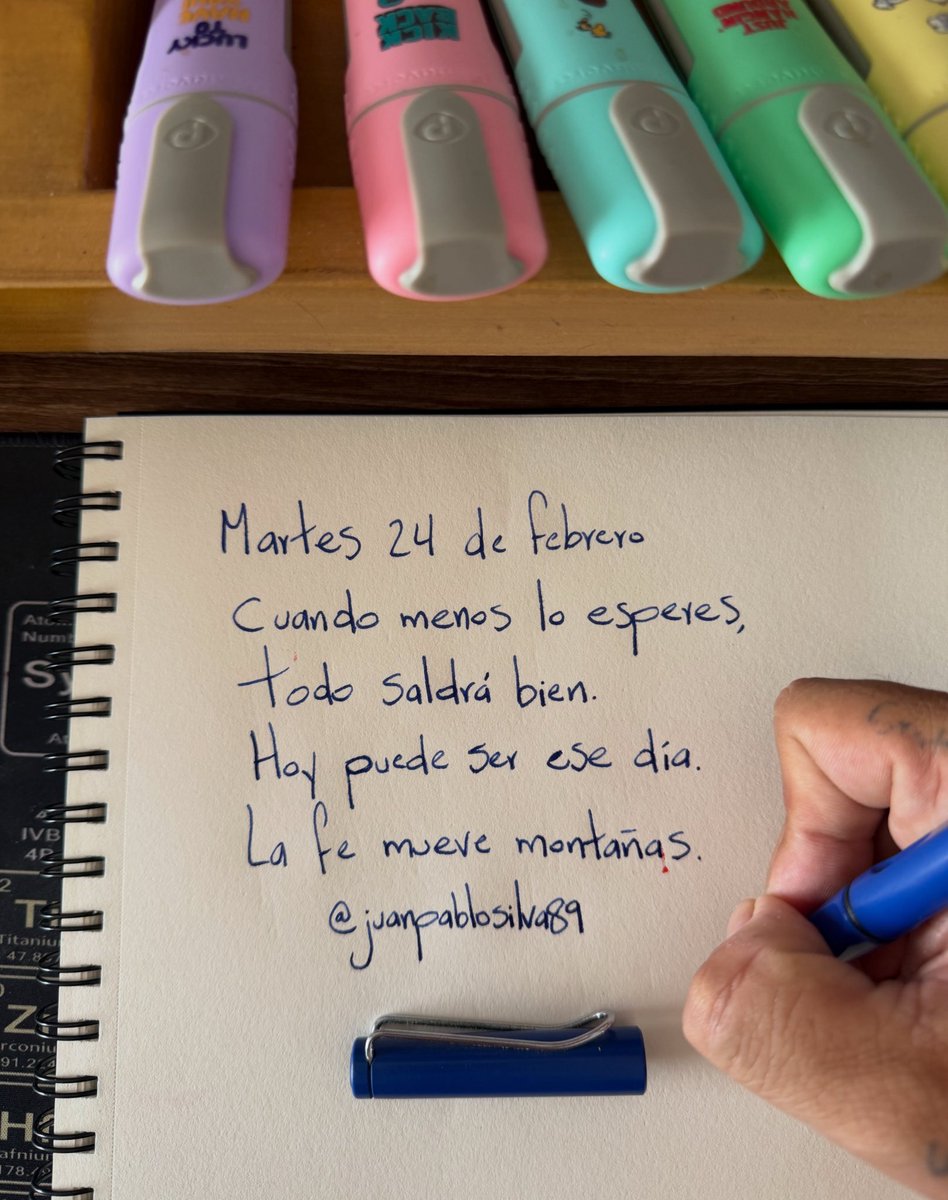 LUCKY
TO
KICK
BACK
JUST
Martes 24 de febrero
Cuando menos lo esperes,
todo saldrá bien.
Hoy puede ser ese día.
La fe mueve montañas.
@juanpablosilva89
Numb
Sy
IVB
2
T
Titaniu
47.8
Z
91.2
178.4